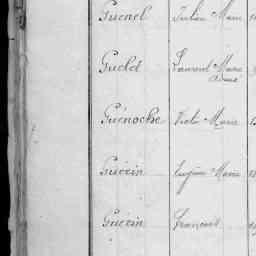 Guenel Julien Marie
Guelet Laurent Marie
Aimé
Guénoche Victor Marie
Guérin Eugène Marie
Guérin François